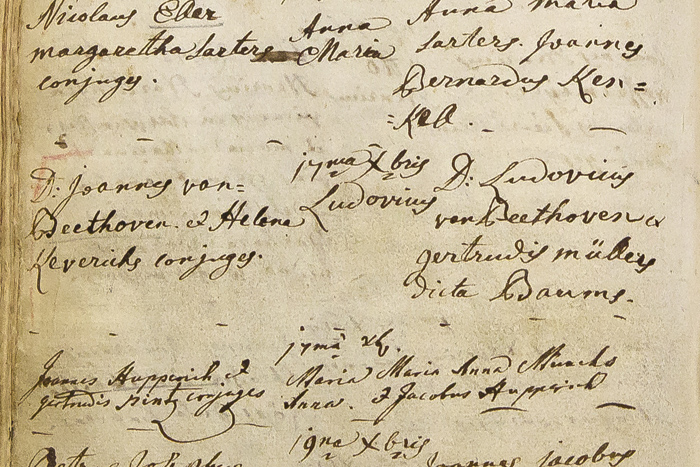 Nicolaus Eller
margaretha Sarters
conjuges.
Anna
Maria
Anna maria
sarters. Joannes
Bernardus Ken=
=Kel.
D: Joannes van=
Beethoven. & Helena
Keverichs conjuges.
17ma Xbris
Ludovicus
D: Ludovicus
van Beethoven &
gertrudis müllers
dicta Baums.
Joannes Hupperich &
gertrudis conjuges
17mâ
Maria
Anna.
Maria Anna Munchs
& Jacobus Hupperich
19na Xbris
Josephus
Joannes jacobus